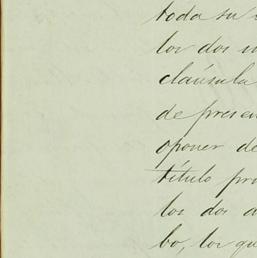 toda su
los dos
cláusula
de presen
oponer de
título pro
los dos a
bo, los qu